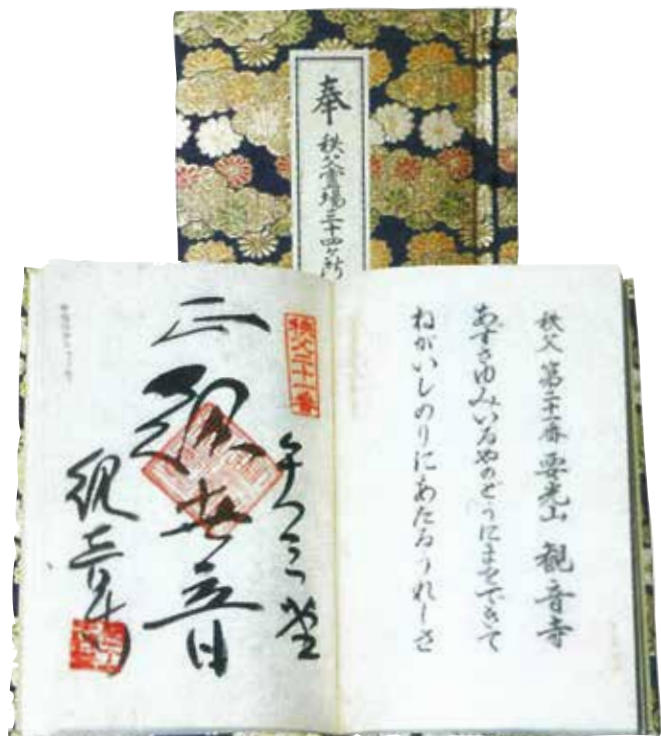 奉 秩父霊場三十四ヶ所
秩父第二十一番 要光山 観音寺
あずさゆみいるやのどうにまうできて
ねがいしのりにあたるうれしさ
秩父二十一番
正観世音
観音寺